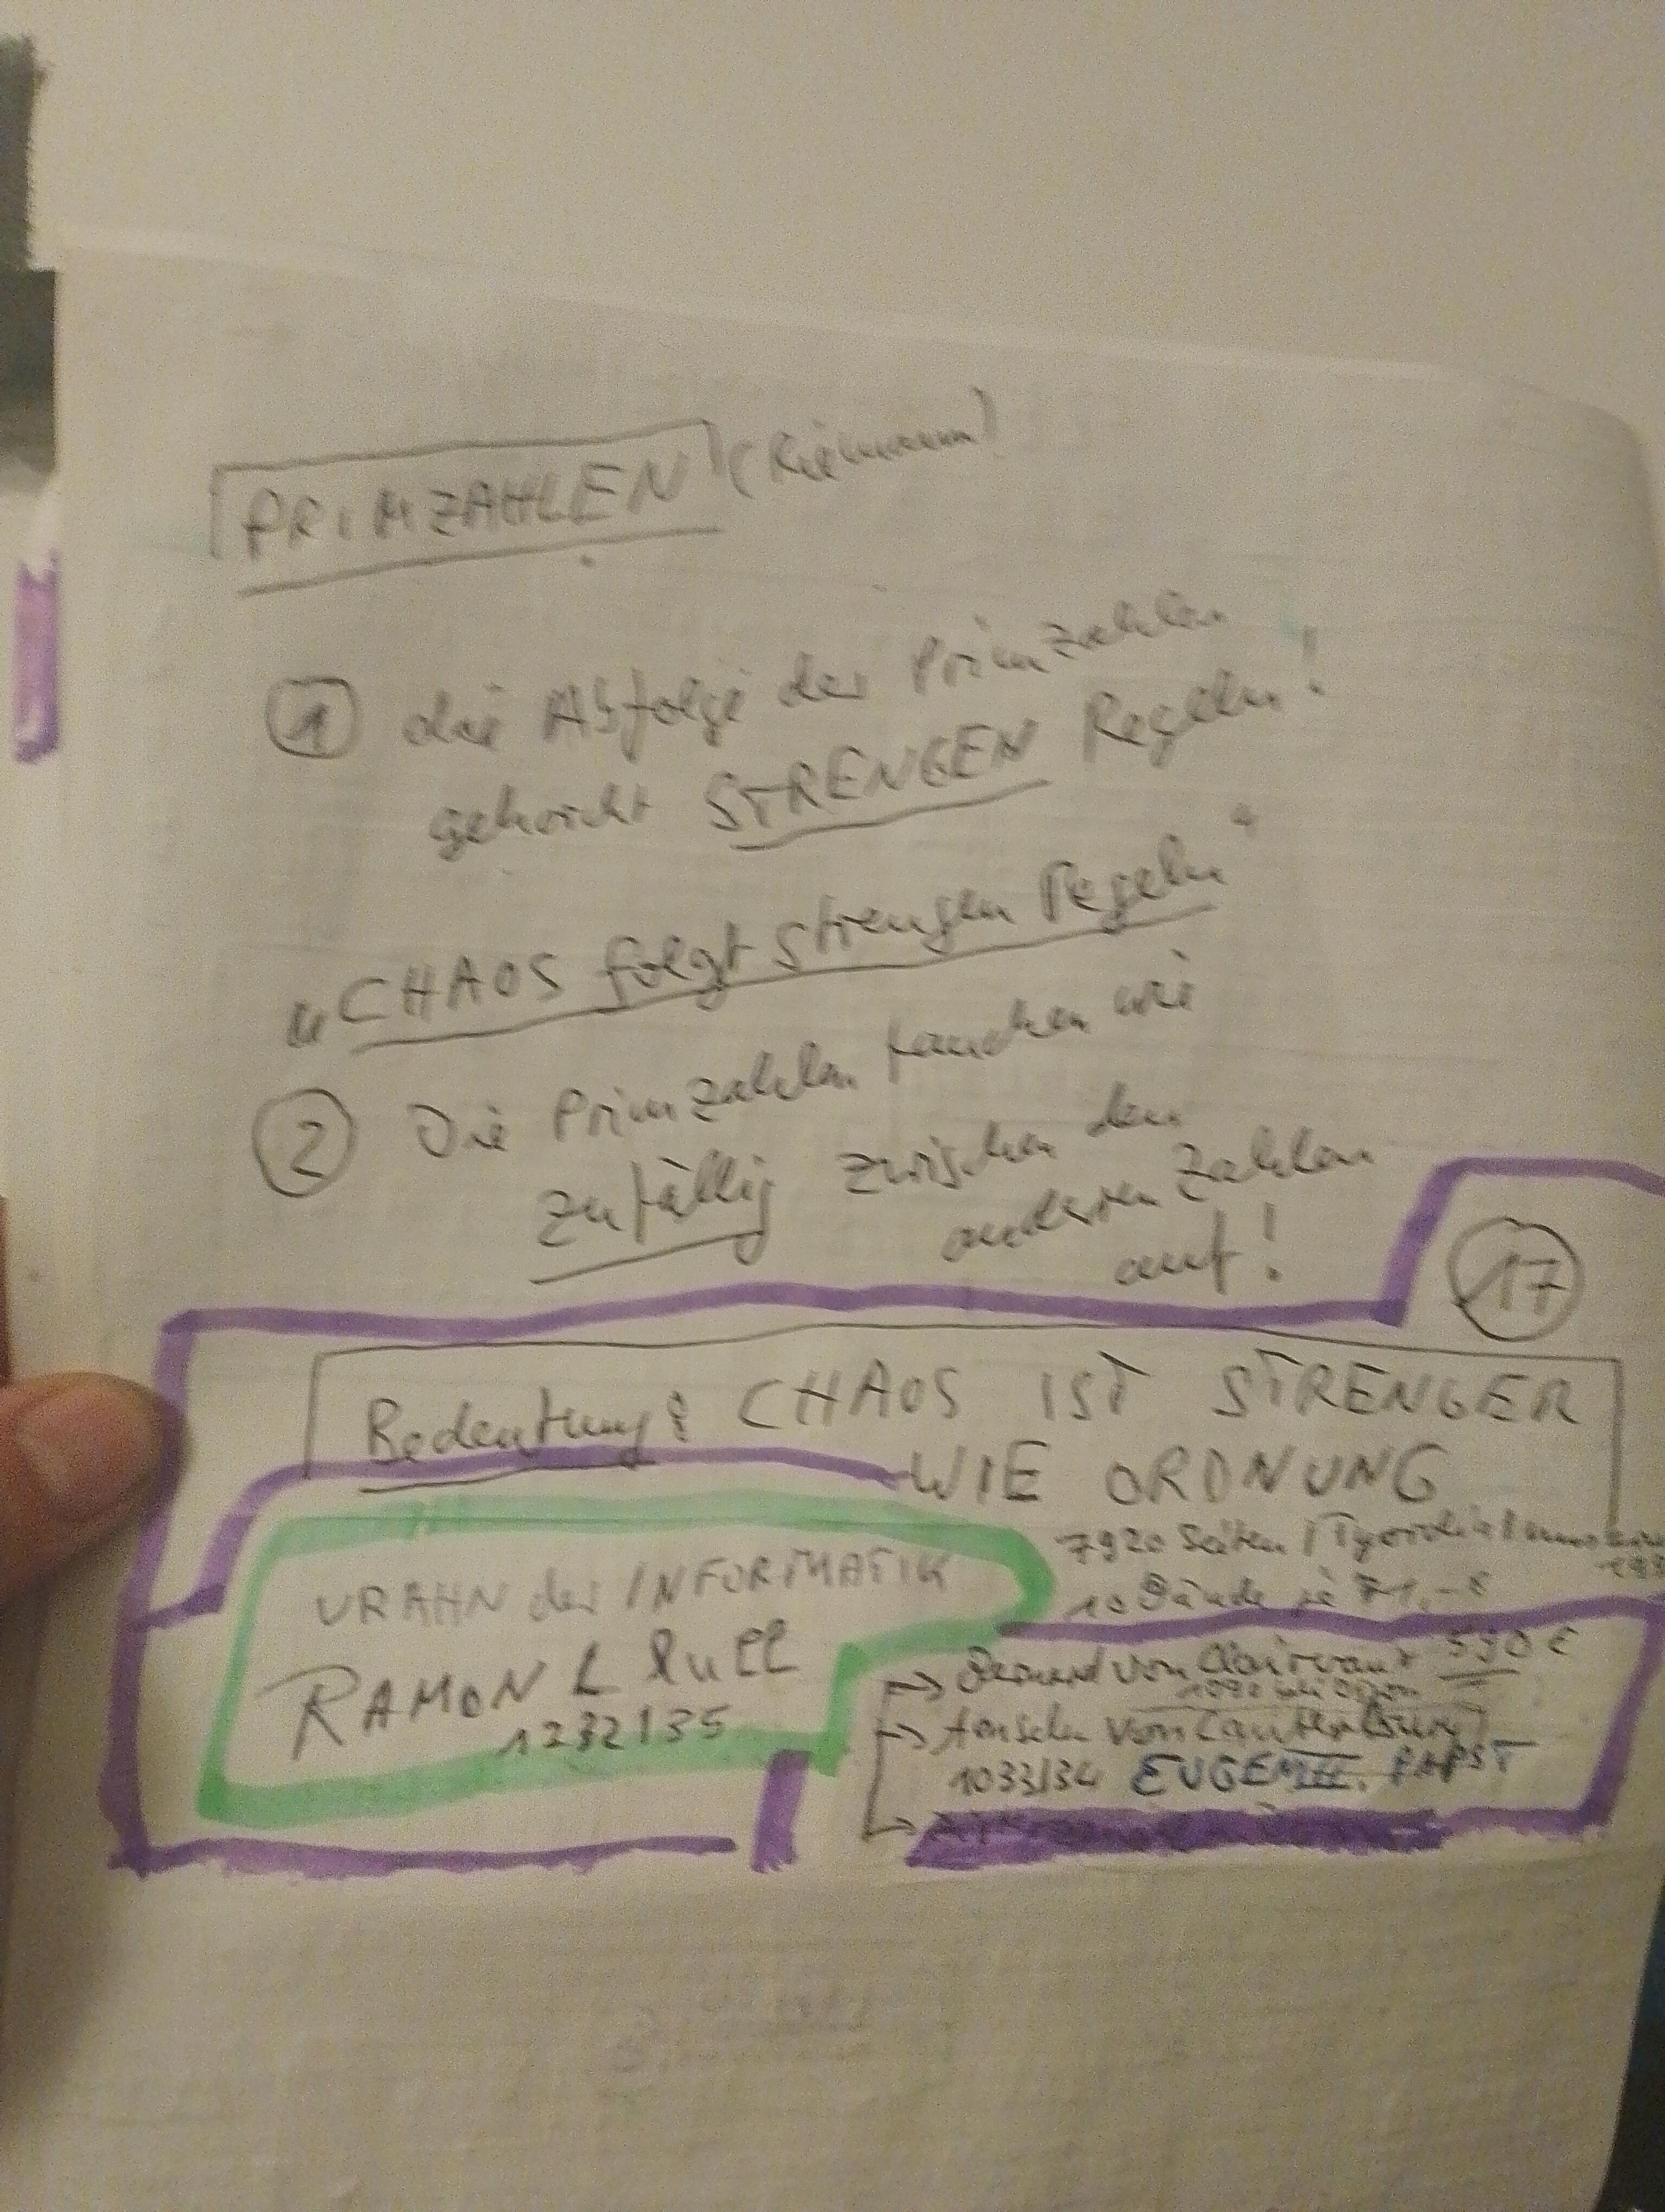 PRIMZAHLEN (Riemann)
1 die Abfolge der Primzahlen
gehorcht STRENGEN Regeln!
„CHAOS folgt strengen Regeln“
2 Die Primzahlen tauchen wie
zufällig zwischen den
anderen Zahlen
auf!
17
Bedeutung: CHAOS IST STRENGER
WIE ORDNUNG
7920 Seiten /
10 Bände je 71,-
URAHN der INFORMATIK
RAMON L lull
1232/35
→ Bernard von Clairvaux 590 €
1090 bei Dijon
→ Anselm von Canterbury
1033/34 EUGEN III. PAPST